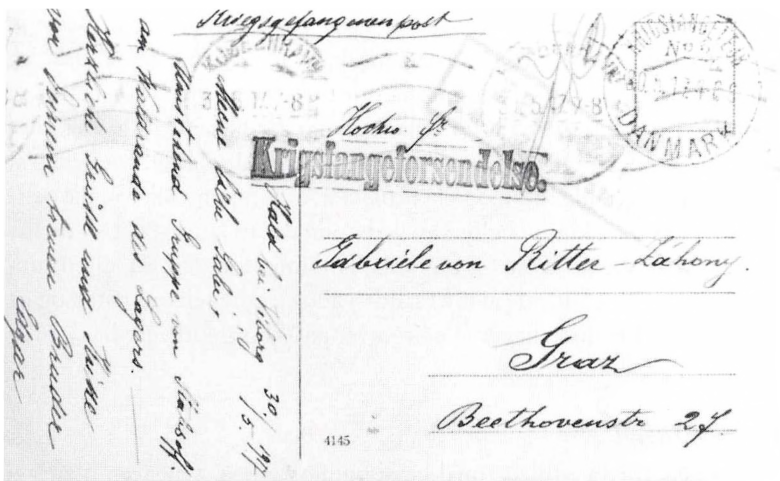 Kriegsgefangenenpost
KJØBENHAVN
DANMARK
Hochw. Fr.
Krigsfangeforsendelse.
Gabriele von Ritter-Záhony.
Graz
Beethovenstr 27
4145
Hald bei Viborg 30/5. 1917
Meine liebe Gabi,
Umstehend Gruppe von Stabsof.
am Waldrande des Lagers.
Herzliche Grüße und Küsse
von Deinem treuen Bruder
Edgar